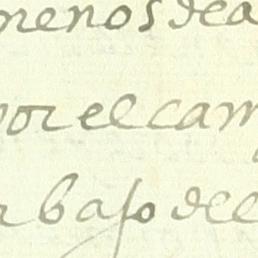 menos de a
por el cam
rbajo del